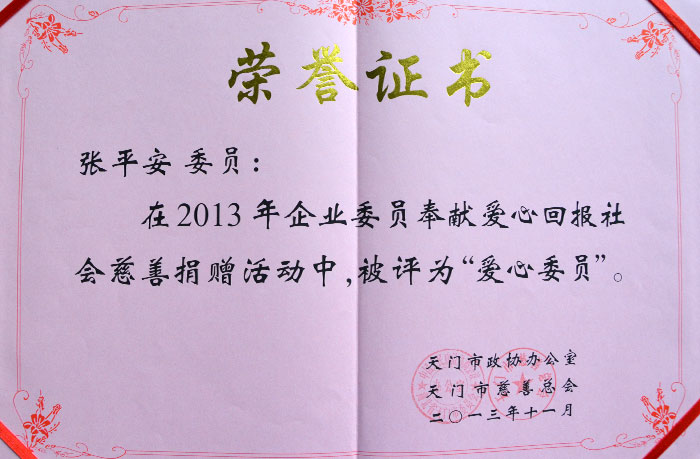 荣誉证书
张平安 委员：
在2013年企业委员奉献爱心回报社
会慈善捐赠活动中,被评为“爱心委员”。
天门市政协办公室
天门市慈善总会
二〇一三年十一月